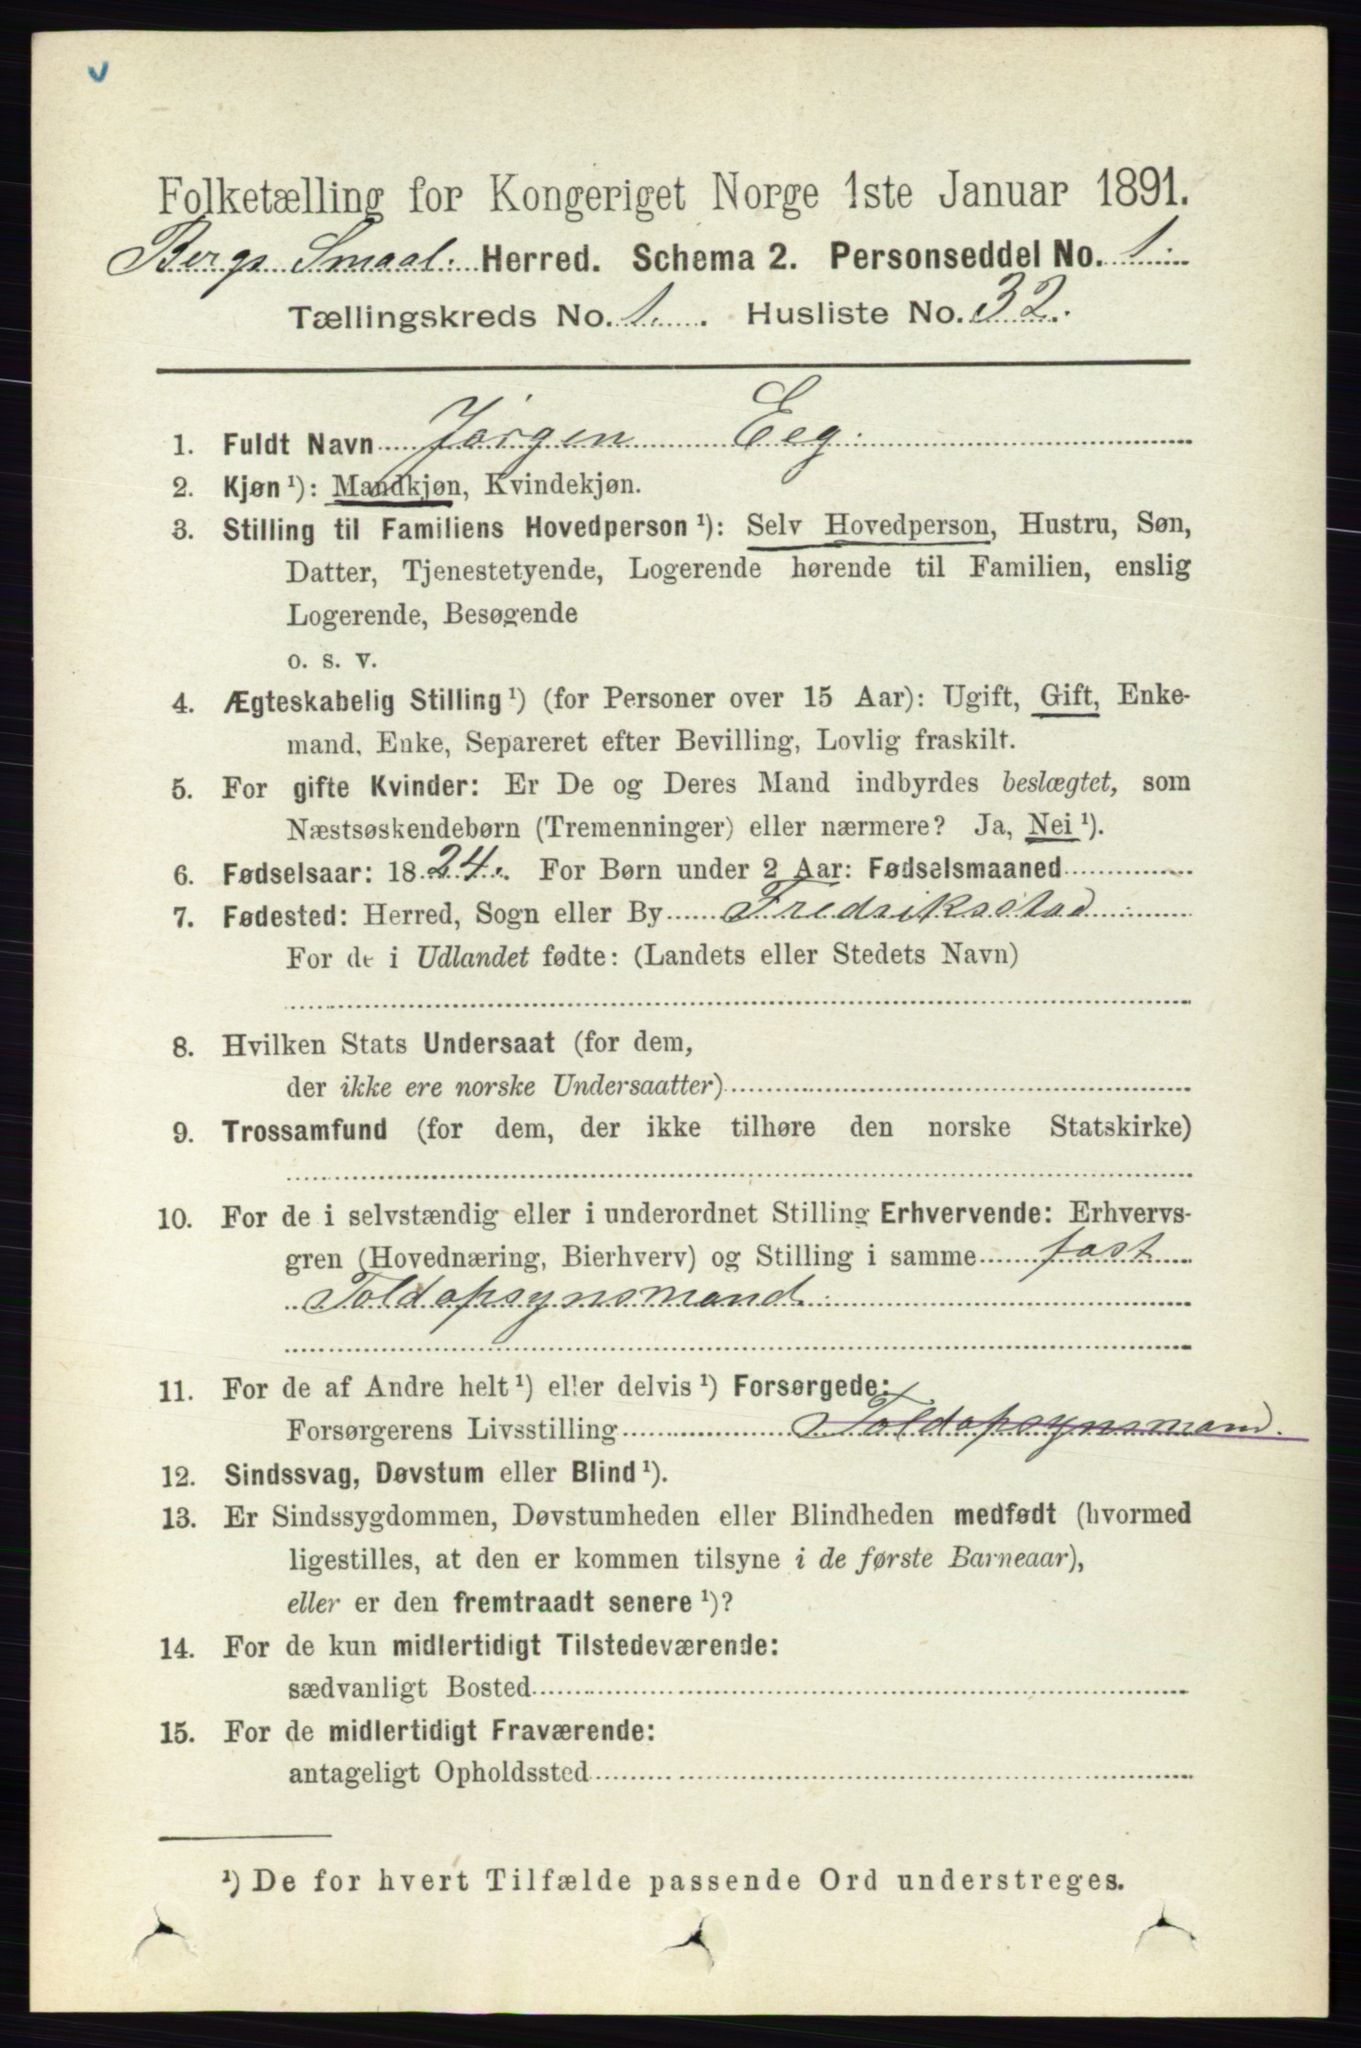 Folketælling for Kongeriget Norge 1ste Januar 1891.
Bergs Smaal. Herred. Schema 2. Personseddel No. 1.
Tællingskreds No. 1. Husliste No. 32.
1. Fuldt Navn Jörgen Eeg.
2. Kjøn¹): Mandkjøn, Kvindekjøn.
3. Stilling til Familiens Hovedperson¹): Selv Hovedperson, Hustru, Søn,
Datter, Tjenestetyende, Logerende hørende til Familien, enslig
Logerende, Besøgende
o. s. v.
4. Ægteskabelig Stilling¹) (for Personer over 15 Aar): Ugift, Gift, Enke-
mand, Enke, Separeret efter Bevilling, Lovlig fraskilt.
5. For gifte Kvinder: Er De og Deres Mand indbyrdes beslægtet, som
Næstsøskendebørn (Tremenninger) eller nærmere? Ja, Nei¹).
6. Fødselsaar: 1824. For Børn under 2 Aar: Fødselsmaaned
7. Fødested: Herred, Sogn eller By Fredriksstad
For de i Udlandet fødte: (Landets eller Stedets Navn)
8. Hvilken Stats Undersaat (for dem,
der ikke ere norske Undersaatter)
9. Trossamfund (for dem, der ikke tilhøre den norske Statskirke)
10. For de i selvstændig eller i underordnet Stilling Erhvervende: Erhvervs-
gren (Hovednæring, Bierhverv) og Stilling i samme fast
Toldopsynsmand.
11. For de af Andre helt¹) eller delvis¹) Forsørgede:
Forsørgerens Livsstilling Toldopsynsmand.
12. Sindssvag, Døvstum eller Blind¹).
13. Er Sindssygdommen, Døvstumheden eller Blindheden medfødt (hvormed
ligestilles, at den er kommen tilsyne i de første Barneaar),
eller er den fremtraadt senere¹)?
14. For de kun midlertidigt Tilstedeværende:
sædvanligt Bosted
15. For de midlertidigt Fraværende:
antageligt Opholdssted
¹) De for hvert Tilfælde passende Ord understreges.